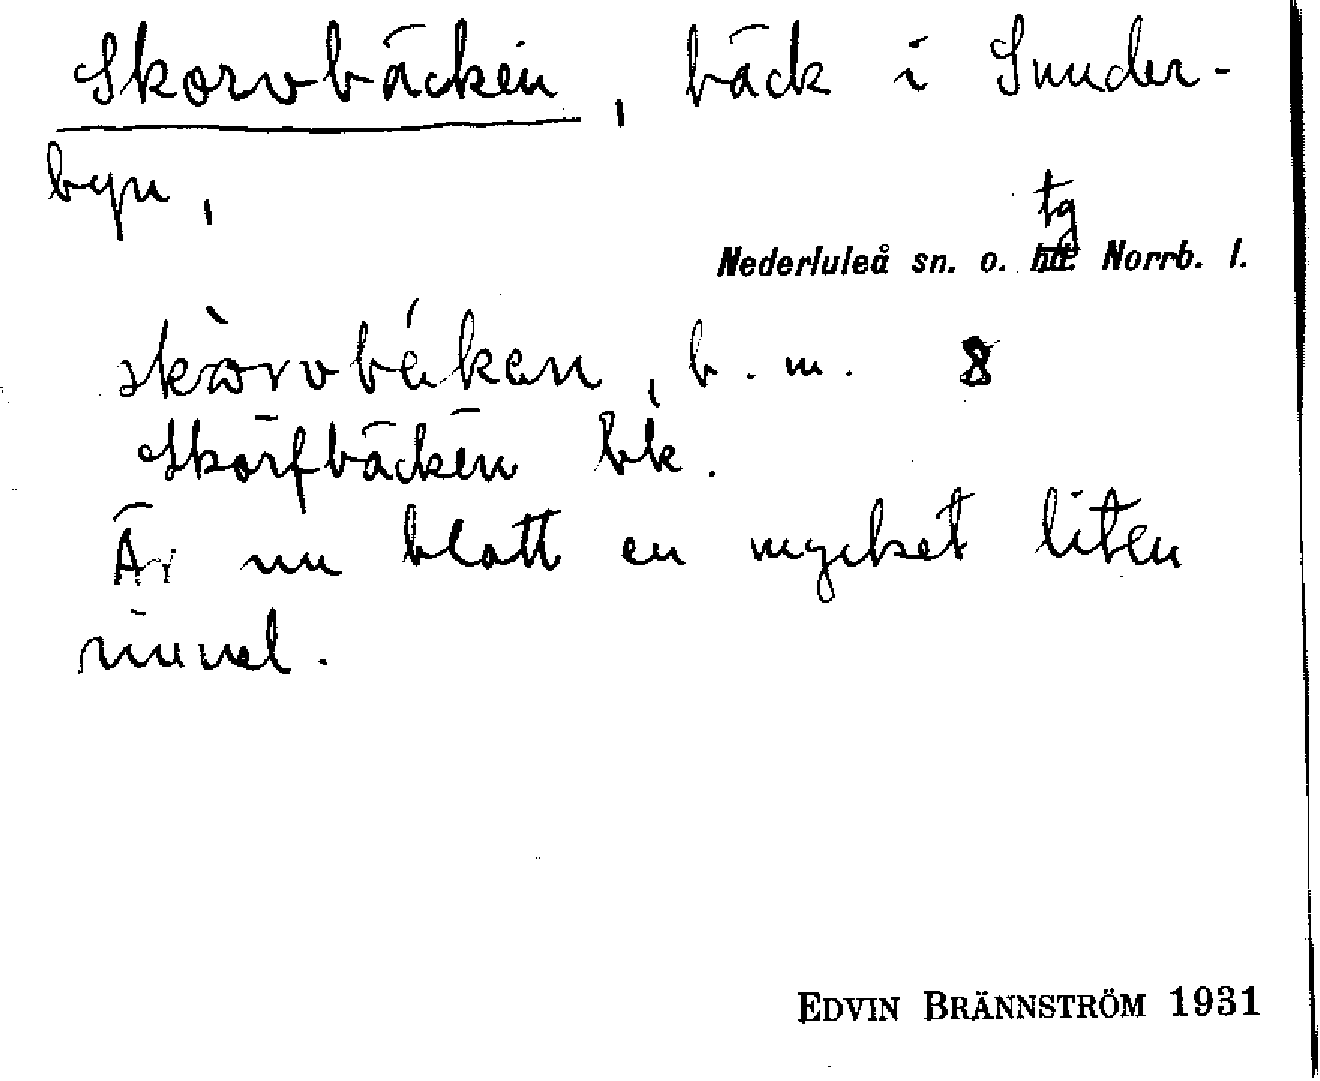 Skorvbäcken, bäck i Sunder-
byn,
tg
Nederluleå sn. o. hd. Norrb. l.
skòrvbékan, b. m. 8
Skörfbäcken bk.
Är nu blott en mycket liten
rinnel.
EDVIN BRÄNNSTRÖM 1931